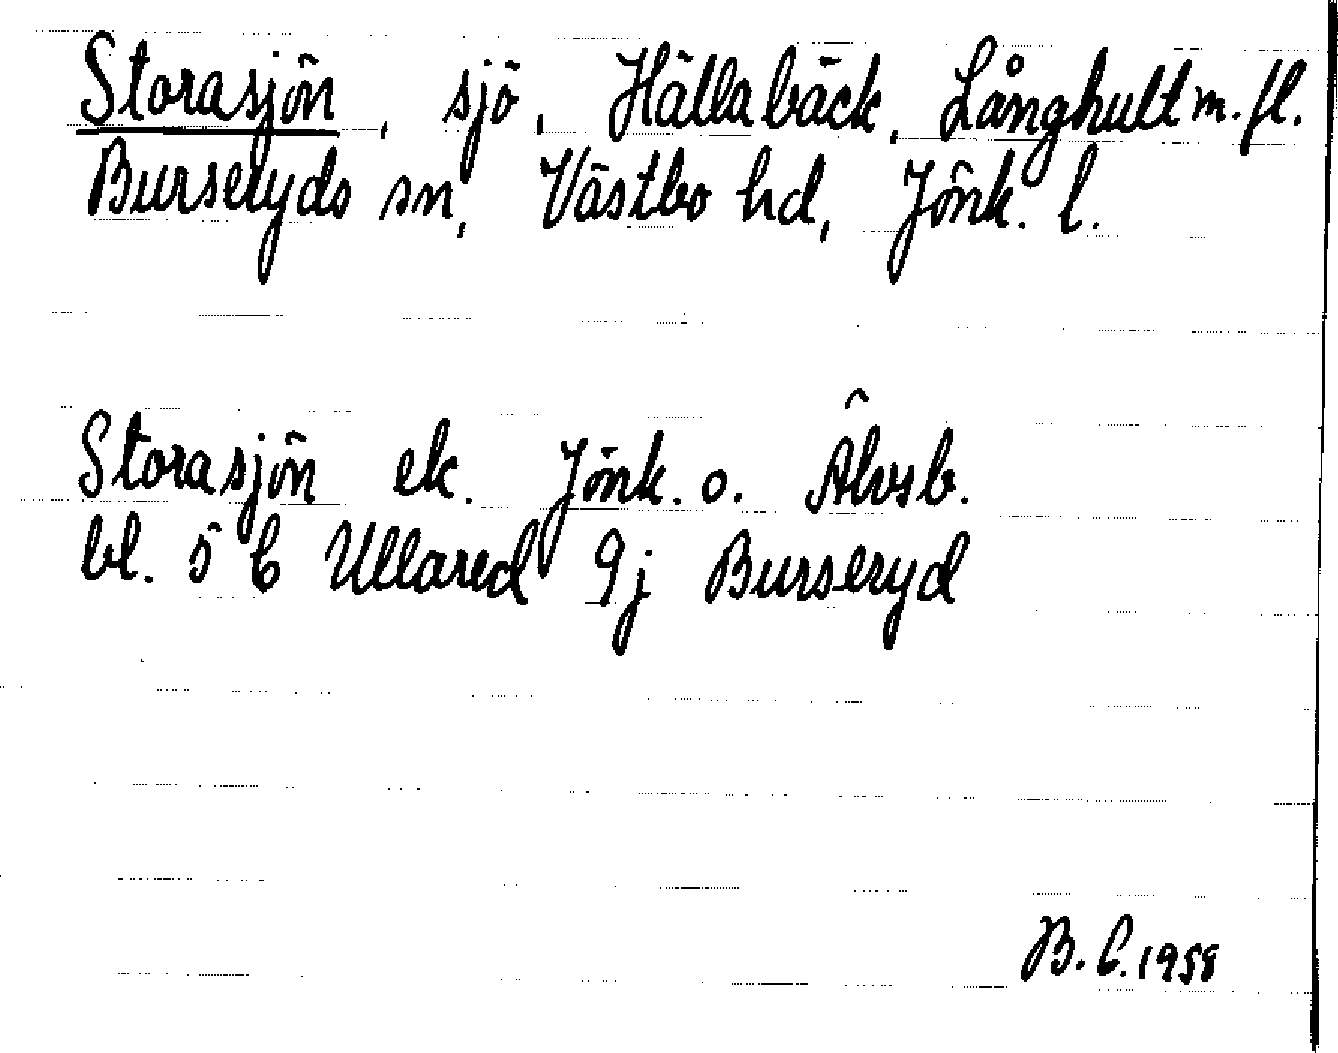 Storasjön, sjö, Hällabäck, Långhult m.fl.
Burseryds sn, Västbo hd, Jönk. l.
Storasjön ek. Jönk. o. Älvsb.
bl. 5 C Ullared 9j Burseryd
B.C. 1958